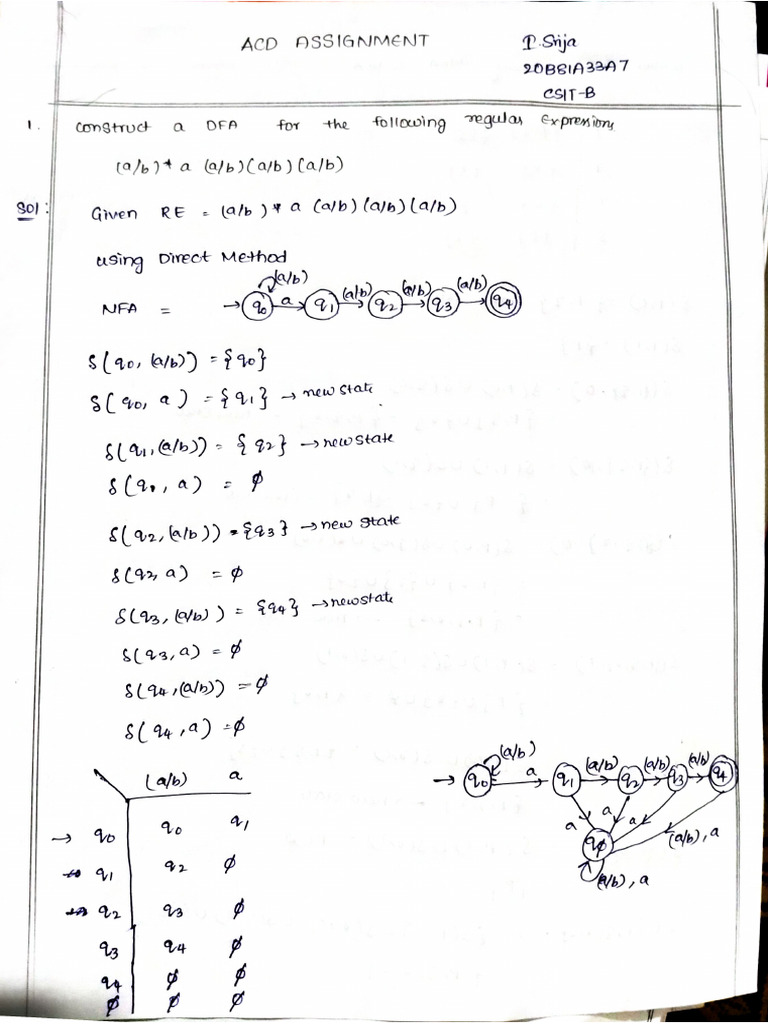 ACD ASSIGNMENT
P. Srija
20B81A33A7
CSIT-B
1. Construct a DFA for the following regular Expressions
(a/b)* a (a/b)(a/b)(a/b)
Sol: Given RE = (a/b)* a (a/b)(a/b)(a/b)
using Direct Method
(a/b)
NFA = → q0 a q1 (a/b) q2 (a/b) q3 (a/b) q4
δ(q0, (a/b)) = {q0}
δ(q0, a) = {q1} → new state
δ(q1, (a/b)) = {q2} → new state
δ(q1, a) = ϕ
δ(q2, (a/b)) = {q3} → new state
δ(q2, a) = ϕ
δ(q3, (a/b)) = {q4} → new state
δ(q3, a) = ϕ
δ(q4, (a/b)) = ϕ
δ(q4, a) = ϕ
(a/b) a
→ q0 q0 q1
q1 q2 ϕ
q2 q3 ϕ
q3 q4 ϕ
q4 ϕ ϕ
ϕ ϕ ϕ
(a/b)
→ q0 a q1 (a/b) q2 (a/b) q3 (a/b) q4
a a a (a/b), a
qϕ
(a/b), a